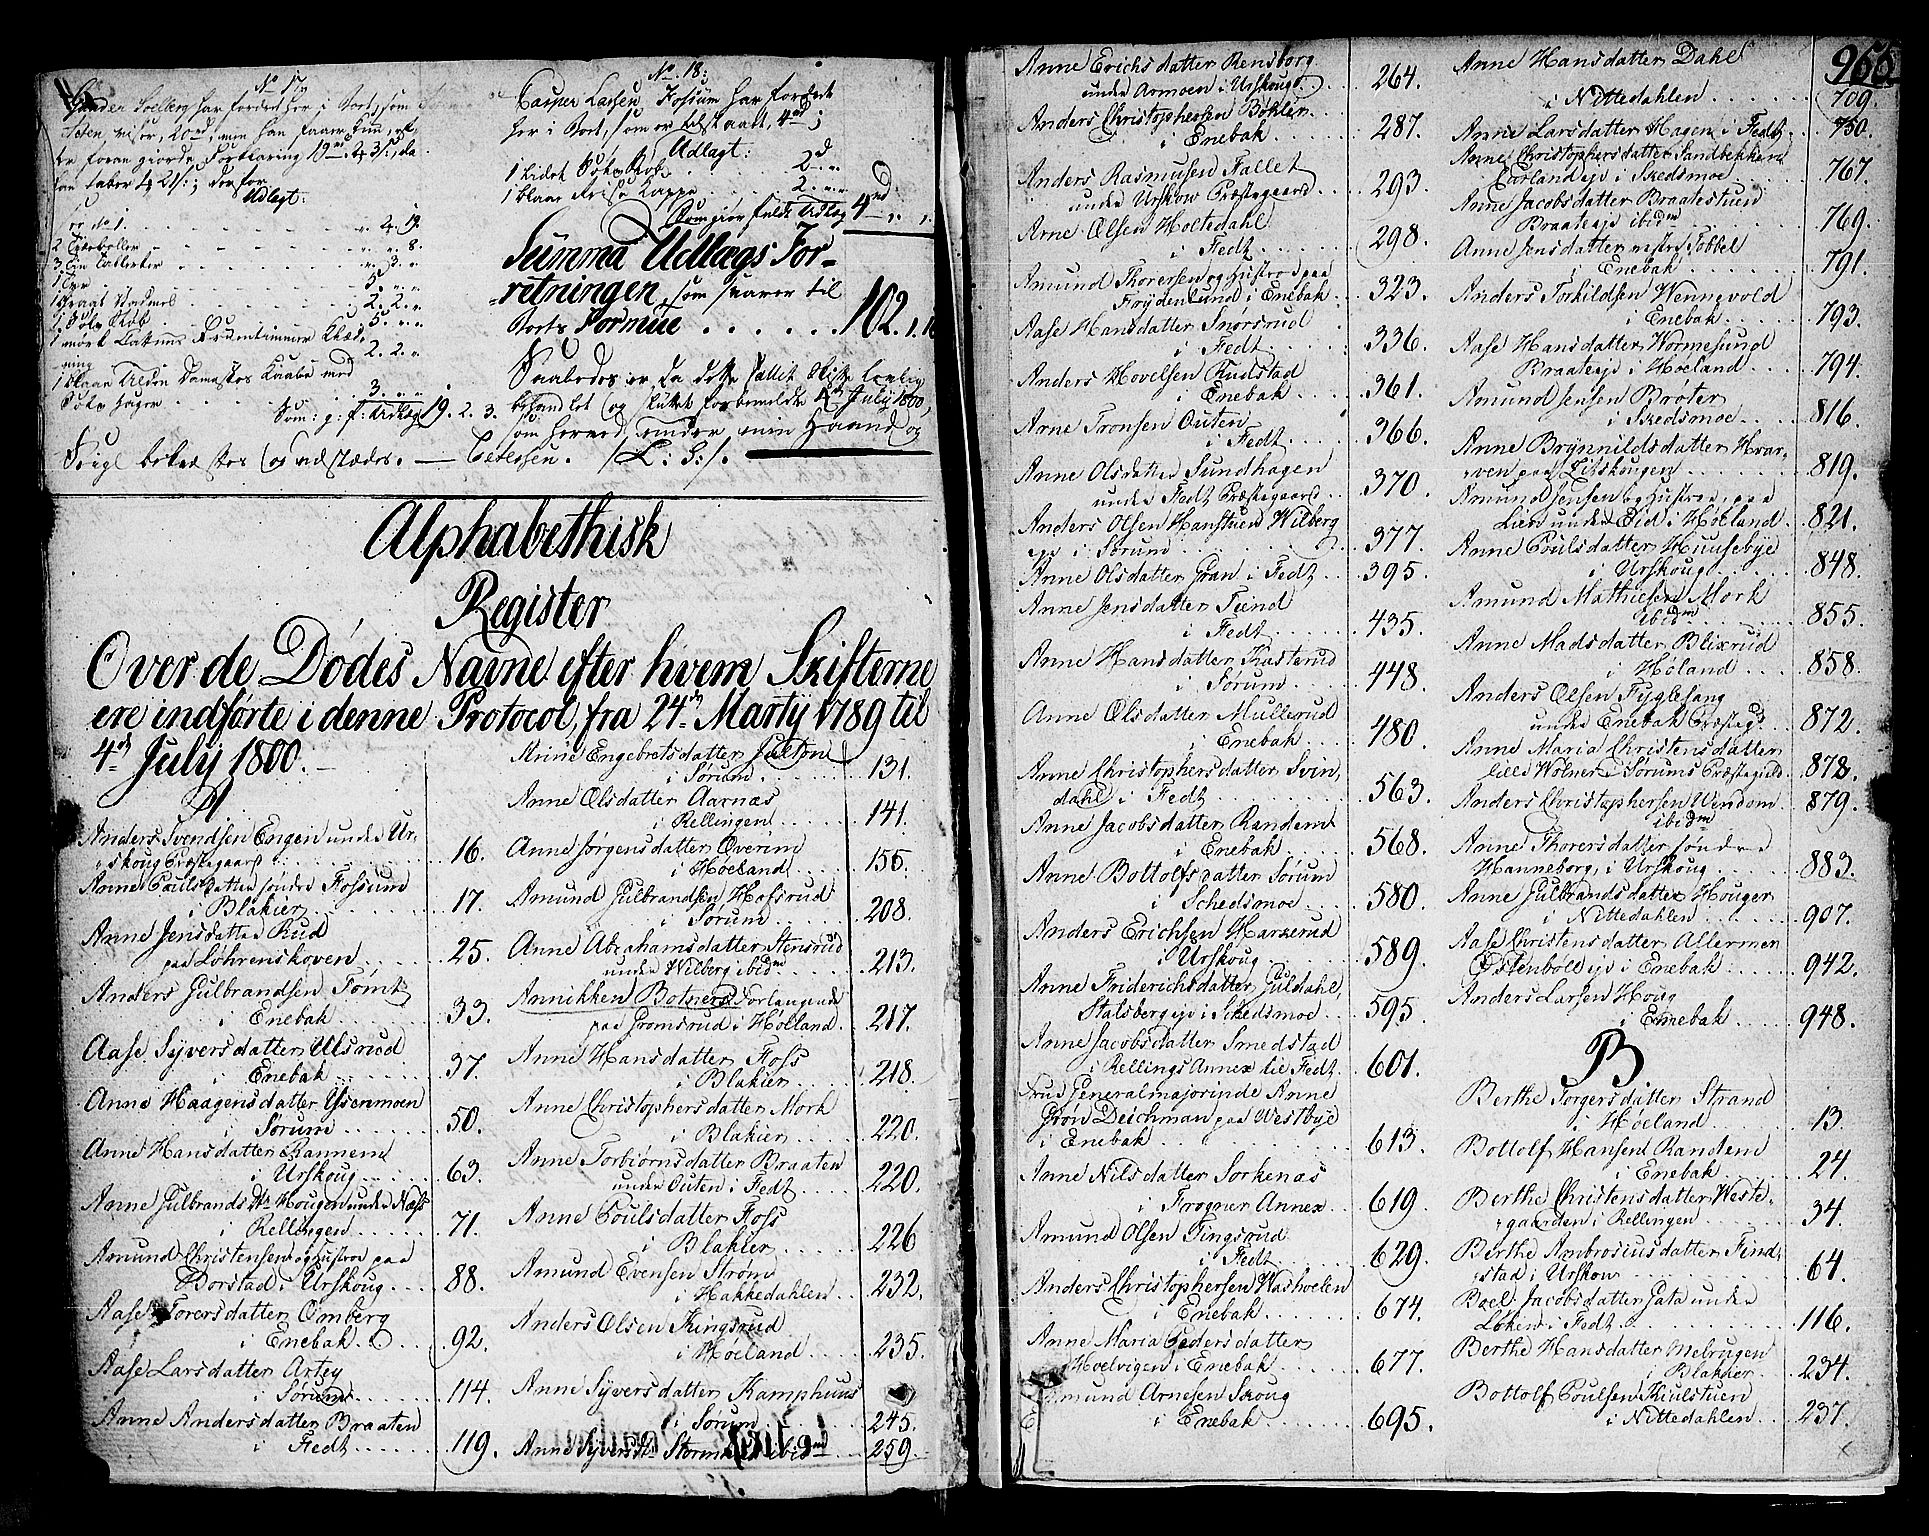 No 17
Soelberg har fordret her i Bort, som
viser, 20 rd, men han faaer kun, ef
ter foran giorde Forklaring 19 rd 2 # 3 s, da
han taber 4 # 21 s; derfor
Udlagt:
No 1. . . . ". 4. 19.
2 . . . ". ". 8.
3 Tin Tallerker . . . ". 3. ".
1 . . . 5. ". ".
1 Vadmel . . . 2. 2. ".
1 . . . 5. ". ".
1 sort Fruentimmer Klæd-
ning . . . 2. 2. ".
1 blaae Ulden Damaskes Kaabe med
. . . 3. ". ".
Sum: g: f: Udlæg 19. 2. 3.
No 18:
Casper Larsen Fossum har fordret
her i Bort, som er tilstaaet, 4 rd;
Udlagt:
1 . . . 2 rd ". ".
1 blaae Reise Kappe . . . 2. ". ".
Som giør fuldt Udlæg 4 rd ". ".
Summa Udlægs For-
retningen, som svarer til
Borts Formue . . . . . . 102. 1.
Saaledes er da dette Skifte lovlig
behandlet og sluttet forbemeldte 4de July 1800,
som herved, under min Haand og
Seigl bekræftes og vedstædes. — Petersen. /L: S:/.
Alphabethisk
Register
Over de Dødes Navne efter hvem Skifterne
ere indførte i denne Protocol, fra 24de Martij 1789 til
4de July 1800. —
A
Anders Svendsen Engen under Ur-
skoug Præstegaard . . . 16.
Anne Poulsdatter søndre Fossum
i Blakier . . . 17.
Anne Jensdatter Rud
paa Løhrenskoven . . . 25.
Anders Gulbrandsen Tomt
i Enebak . . . 33.
Aase Syversdatter Ulsrud
i Enebak . . . 37.
Anne Haagensdatter Isenmoen
i Sørum . . . 50.
Anne Hansdatter Rannem
i Urskoug . . . 63.
Anne Gulbrands Dr Hougen under Næss
i Rellingen . . . 71.
Amund Christensen og Hustroe paa
Borstad i Urskoug . . . 88.
Aase Torersdatter Omberg
i Enebak . . . 92.
Aase Larsdatter Artey
i Sørum . . . 114.
Anne Andersdatter Braaten
i Fedt . . . 119.
Anne Engebretsdatter Julton
i Sørum . . . 131.
Anne Olsdatter Aarnæs
i Rellingen . . . 141.
Anne Jørgensdatter Overim
i Høeland . . . 155.
Amund Gulbrandsen Hofsrud
i Sørum . . . 208.
Anne Abrahamsdatter Stensrud
under Wilberg ibidm . . . 213.
Annikken Botners Forlangende
paa Gromsrud i Høeland . . . 217.
Anne Hansdatter Foss
i Blakier . . . 218.
Anne Christophersdatter Mork
i Blakier . . . 220.
Anne Torbiørnsdatter Braaten
under Outen i Fedt . . . 220.
Anne Poulsdatter Foss
i Blakier . . . 226
Amund Evensen Strøm
i Hakkedahlen . . . 232.
Anders Olsen Kingsrud
i Høeland . . . 235.
Anne Syversdatter Kamphuus
i Sørum . . . 245.
Anne Syversdr ibidm . . . 259.
966
Anne Erichsdatter Rensborg
under Armoen i Urskoug . . . 264.
Anders Christophersen Bøhler
i Enebak . . . 287.
Anders Rasmusen Fallet
under Urskow Præstegaard . . . 293.
Arne Olsen Holtedahl
i Fedt . . . 298.
Amund Thorersen og Hustroe paa
Frydenlund i Enebak . . . 323.
Aase Hansdatter Snørsrud
i Fedt . . . 336.
Anders Hovelsen Rudstad
i Enebak . . . 361.
Arne Tronsen Outen
i Fedt . . . 366.
Anne Olsdatter Sundhagen
under Fedt Præstegaard . . . 370.
Anders Olsen Hanstuen Wilberg
eye i Sørum . . . 377.
Anne Olsdatter Gran i Fedt . . . 395.
Anne Jensdatter Tiend
i Fedt . . . 435.
Anne Hansdatter Kasterud
i Sørum . . . 448.
Anne Olsdatter Mullerud
i Enebak . . . 480.
Anne Christophersdatter Svin
dahl i Fedt . . . 563.
Anne Jacobsdatter Randem
i Enebak . . . 568.
Anne Bottolfsdatter Sørum
i Schedsmoe . . . 580.
Anders Erichsen Harkerud
i Urskoug . . . 589.
Anne Friderichsdatter Guldahl,
Stalsberg eye i Skedsmoe . . . 595.
Anne Jacobsdatter Smedstad
i Rellings Annex til Fedt . . . 601.
Frue Generalmajorinde Anne
Grøn Deichman paa Westbye
i Enebak . . . 613.
Anne Nilsdatter Sorkenæs
i Frogner Annex . . . 619.
Amund Olsen Tingsrud
i Fedt . . . 629.
Anders Christophersen Waskoelen
i Enebak . . . 674.
Anne Maria Pedersdatter
Hoelvigen i Enebak . . . 677.
Amund Arnesen Skoug
i Enebak . . . 695.
Anne Hansdatter Dahl
i Nittedahlen . . . 709.
Anne Larsdatter Hagen i Fedt . . . 750.
Anne Christophersdatter Sandbekken
Farland eye i Skedsmoe . . . 767.
Anne Jacobsdatter Braatestuen
Braateeye ibidm . . . 769.
Anne Jensdatter Tobbel
i Enebak . . . 791.
Anders Torkildsen Wennevold
i Enebak . . . 793.
Aase Hansdatter Wormesund
Braateeye i Høeland . . . 794.
Amund Jensen Brøter
i Skedsmoe . . . 816.
Anne Brynnildsdatter Hvar-
ven paa Eidskougen . . . 819.
Amund Jensen og Hustroe, paa
Lien under Eid i Høeland . . . 821.
Anne Poulsdatter Huusebye
i Urskoug . . . 848.
Amund Mathiesen Mork
ibidm . . . 855.
Anne Madsdatter Blixrud
i Høland . . . 858.
Anders Olsen Fyglesang
under Enebak Præstegd . . . 872.
Anne Maria Christensdatter
lille Wolner i Sørums Præstegield . . . 878.
Anders Christophersen Wendom
ibidm . . . 879.
Anne Thorersdatter søndre
Hanneborg, i Urskoug . . . 883.
Anne Gulbrandsdatter Houger
i Nittedahlen . . . 907.
Aase Christensdatter Allermen
Østenbøll eye i Enebak . . . 942.
Anders Larsen Houg
i Enebak . . . 948.
B
Berthe Torgersdatter Strand
i Høeland . . . 13.
Bottolf Hansen Randem
i Enebak . . . 24.
Berthe Christensdatter Weste-
gaarden i Rellingen . . . 34.
Berthe Ambrosiusdatter Find-
stad i Urskow . . . 64.
Boel Jacobsdatter Gata under
Løken i Fedt . . . 116.
Berthe Hansdatter Melrugen
i Blakier . . . 234.
Bottolf Poulsen Kiulstuen
i Nittedahlen . . . 237.